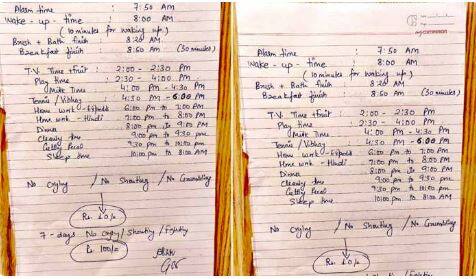 Alarm time : 7:50 AM
Wake - up - time : 8:00 AM
(10 minutes for waking up)
Brush + Bath finish : 8:20 AM
Breakfast finish : 8:50 AM (30 minutes)
T.V. Time : 2:00 - 2:30 PM
Play time : 2:30 - 4:00 PM
Milk Time : 4:00 PM - 4:30 PM
Tennis / : 4:30 PM - 6:00 PM
Home work - : 6:00 PM to 7:00 PM
Home work - Hindi : 7:00 PM to 8:00 PM
Dinner : 8:00 PM to 9:00 PM
time : 9:00 PM to 9:30 PM
9:30 PM to 10:00 PM
Sleep time : 10:00 PM to 8:00 AM
No Crying / No Shouting / No Grumbling
Rs. 10/-
7 - days - No Crying / Shouting / Fighting
Rs 100/-
Alarm time : 7:50 AM
Wake - up - time : 8:00 AM
(10 minutes for waking up)
Brush + Bath finish : 8:20 AM
Breakfast finish : 8:50 AM (30 minutes)
T.V. Time : 2:00 - 2:30 PM
Play time : 2:30 - 4:00 PM
Milk Time : 4:00 PM - 4:30 PM
Tennis / : 4:30 PM - 6:00 PM
Home work - : 6:00 PM to 7:00 PM
Home work - Hindi : 7:00 PM to 8:00 PM
Dinner : 8:00 PM to 9:00 PM
time : 9:00 PM to 9:30 PM
9:30 PM to 10:00 PM
Sleep time : 10:00 PM to 8:00 AM
No Crying / No Shouting / No Grumbling
Rs. 10/-
No Crying / Shouting / Fighting